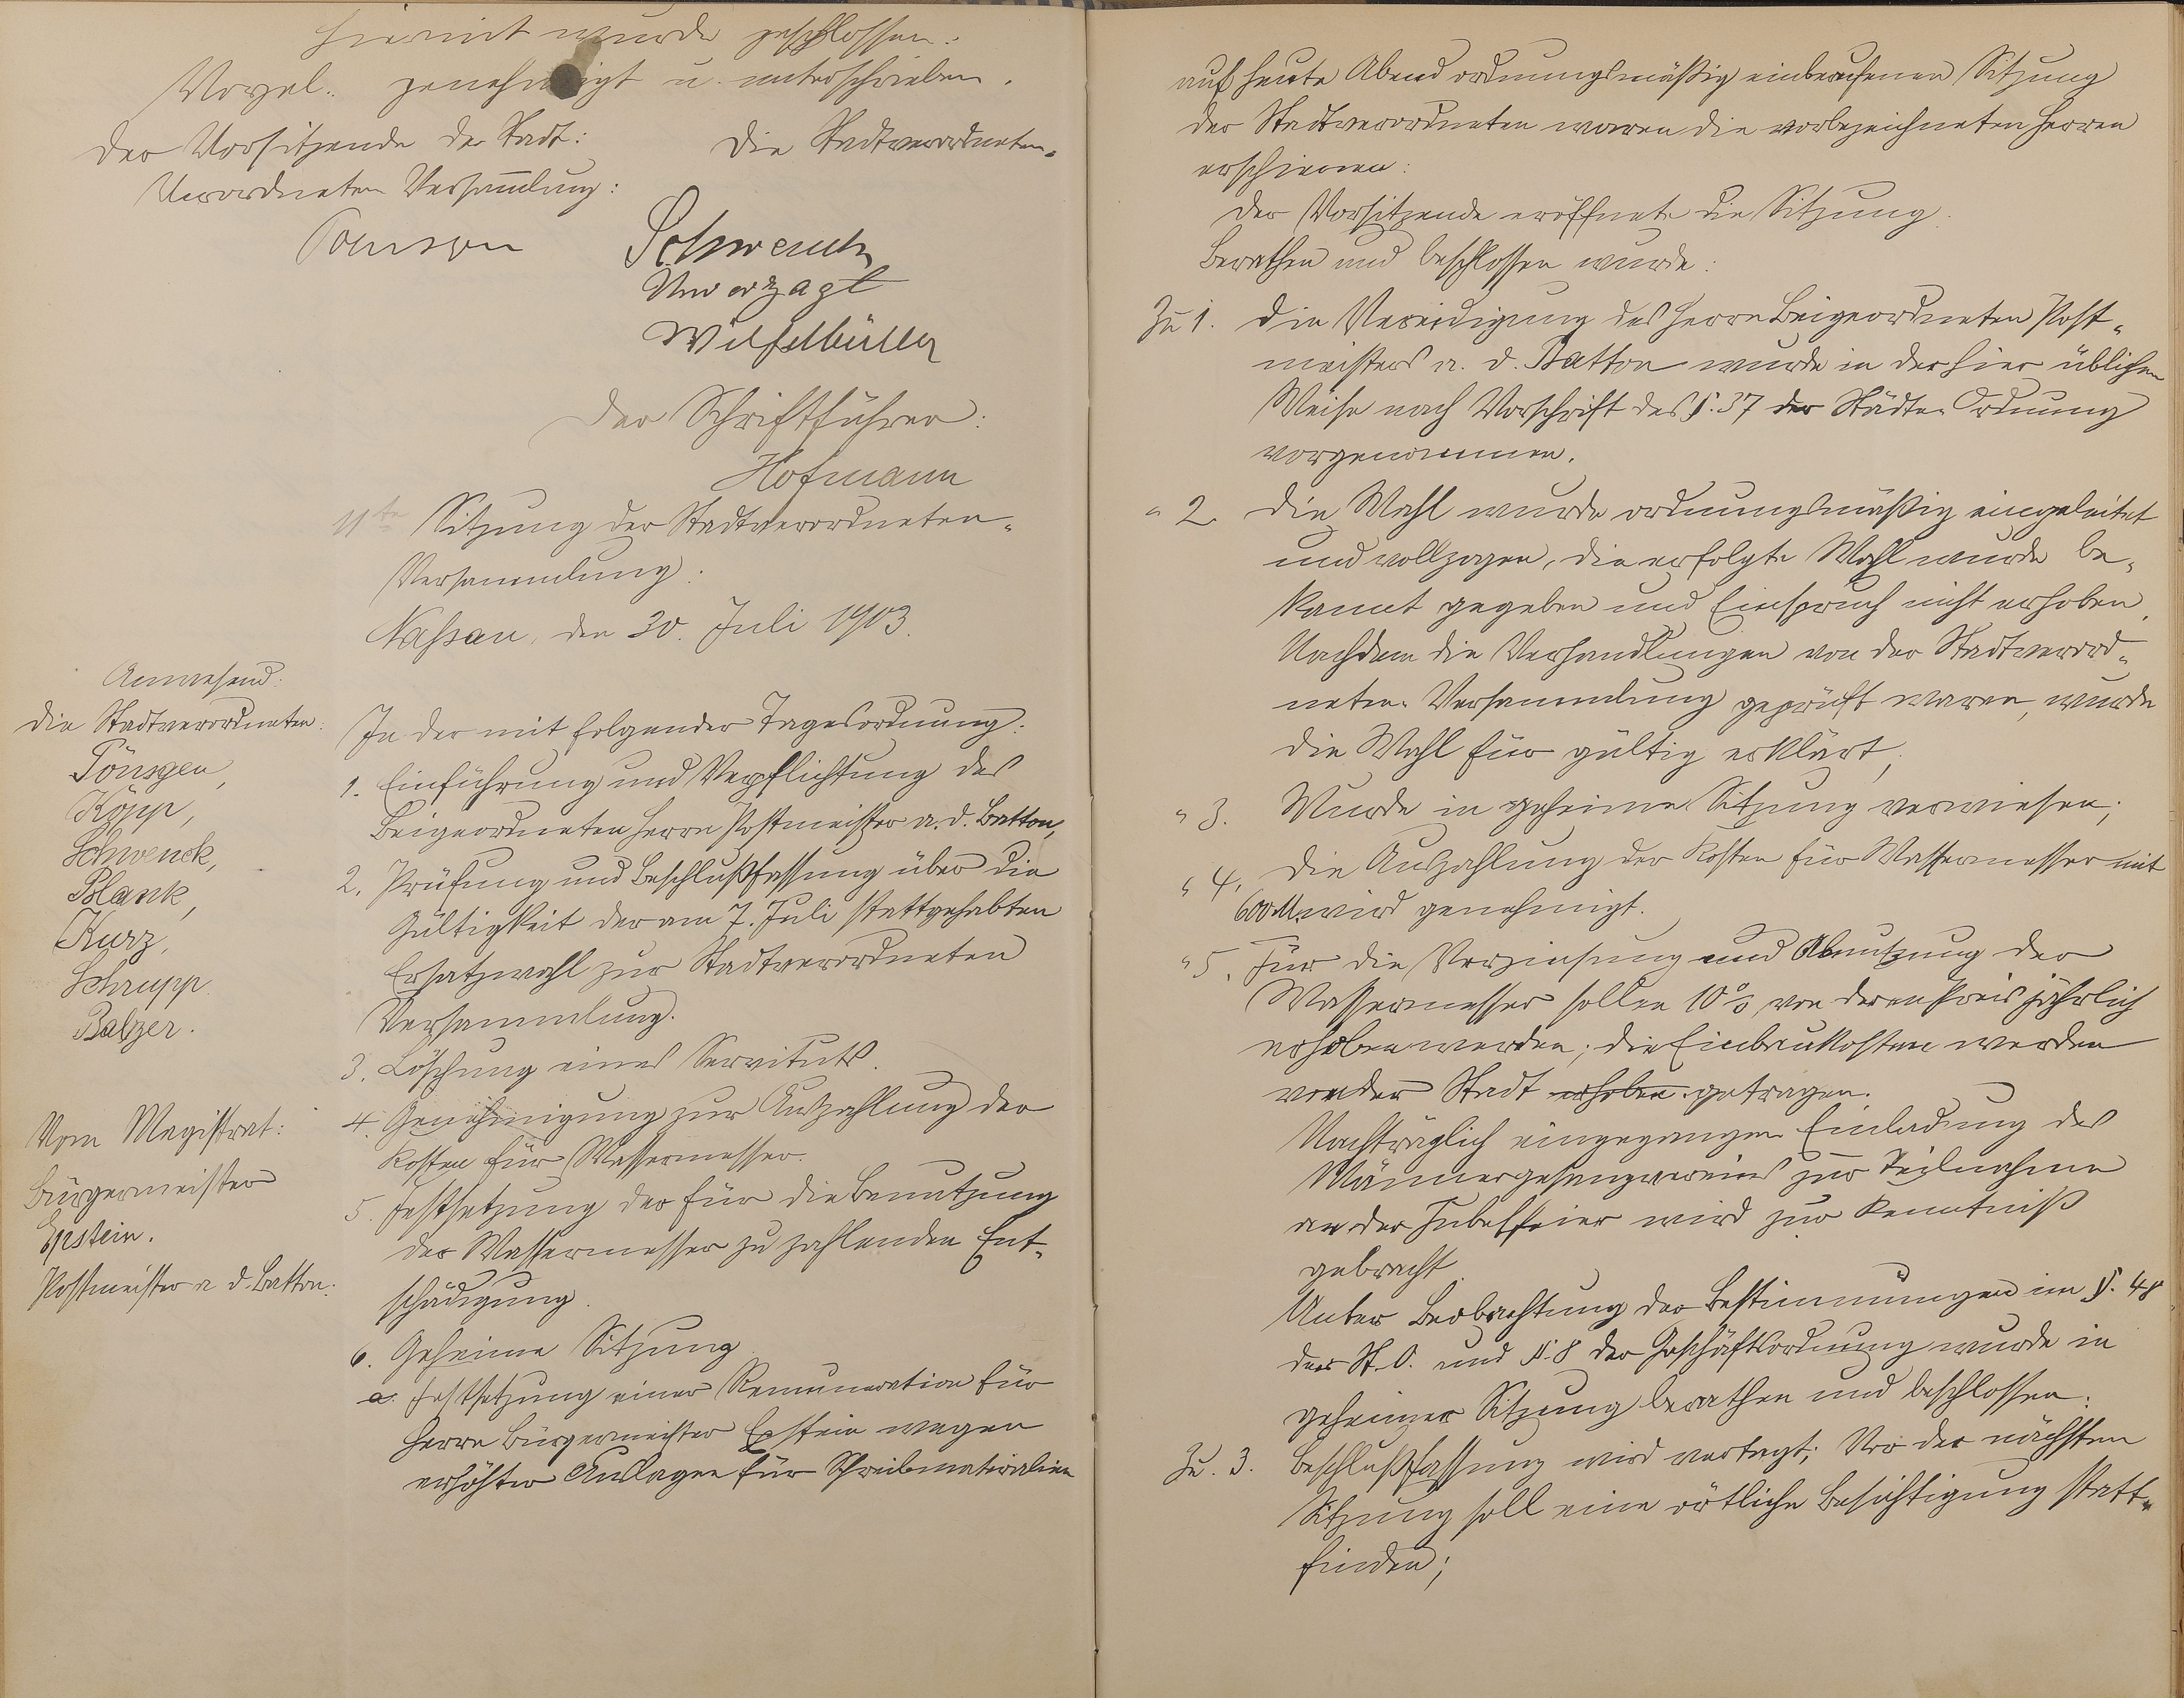 Hiermit wurde geschlossen.
Vorgel. genehmigt u. unterschrieben.
Der Vorsitzende der Stadt:
Verordneten Versam̄lung:
Die Stadtverordneten.
Schwenck
Unverzagt
Der Schriftführer:
Hofmann
11te Sitzung der Stadtverordneten-
Versammlung.
Nassau, den 30. Juli 1903.
Anwesend:
Die Stadtverordneten:
Tönsgen,
Köpp,
Schwenck,
Blank,
Kurz,
Schrupp
Balzer.
Vom Magistrat:
Bürgermeister
Epstein.
Postmeister a. d. Batton.
In der mit folgender Tagesordnung:
1. Einführung und Verpflichtung des
Beigeordneten Herrn Postmeister a. d. Batton,
2. Prüfung und Beschlußfassung über die
Gültigkeit der am 7. Juli stattgehabten
Ersatzwahl zur Stadtverordneten
Versammlung.
3. Löschung eines Servituts.
4. Genehmigung zur Auszahlung der
Kosten für Wassermesser.
5. Festsetzung der für die Benutzung
der Wassermesser zu zahlenden Ent-
schädigung.
6. Geheime Sitzung
a. Festsetzung einer Remuneration für
Herrn Bürgermeister Epstein wegen
erhöhter Auslagen für Schreibmaterialien
auf heute Abend ordnungsmäßig einberufenen Sitzung
der Stadtverordneten waren die vorbezeichneten Herren
erschienen:
Der Vorsitzende eröffnete die Sitzung.
Berathen und beschlossen wurde:
Zu 1. Die Vereidigung des Herrn Beigeordneten Post-
meisters a. d. Batton wurde in der hier üblichen
Weise nach Vorschrift des §. 37 der Städte-Ordnung
vorgenommen.
" 2. Die Wahl wurde ordnungsmäßig eingeleitet
und vollzogen, die erfolgte Wahl wurde be-
kannt gegeben und Einspruch nicht erhoben.
Nachdem die Verhandlungen von der Stadtverord-
neten-Versammlung geprüft waren, wurde
die Wahl für gültig erklärt,
" 3. Wurde in geheime Sitzung verwiesen;
" 4. Die Auszahlung der Kosten für Wassermesser mit
600 M. wird genehmigt.
" 5. Für die Verzinsung und Abnutzung der
Wassermesser sollen 10% von deren Preis jährlich
erhoben werden; die Einbaukosten werden
von der Stadt erhoben getragen.
Nachträglich eingegangene Einladung des
Männergesangvereins zur Teilnahme
an der Jubelfeier wird zur Kenntniß
gebracht.
Unter Beobachtung der Bestimmungen im §. 48
der St. O. und §. 8 der Geschäftsordnung wurde in
geheimer Sitzung berathen und beschlossen:
Zu. 3. Beschlußfassung wird vertagt; Vor der nächsten
Sitzung soll eine örtliche Besichtigung statt-
finden;